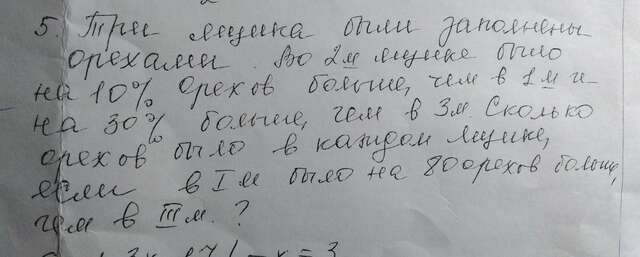 5. Три ящика были заполнены
орехами. Во 2м ящике было
на 10% орехов больше, чем в 1м и
на 30% больше, чем в 3м. Сколько
орехов было в каждом ящике,
если в Iм было на 80 орехов больше,
чем в IIIм.?